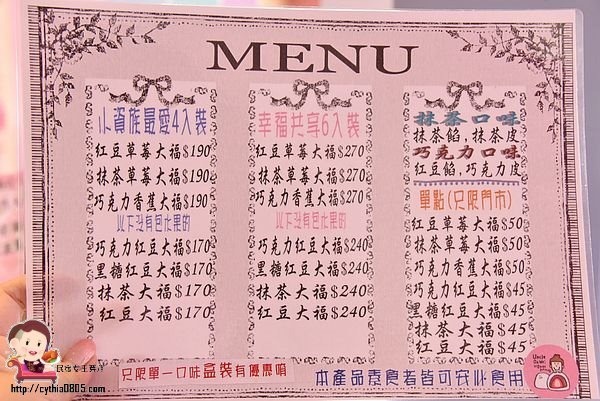 MENU
小資族最愛4入裝
紅豆草莓大福$190
抹茶草莓大福$190
巧克力香蕉大福$190
以下沒有包水果的
巧克力紅豆大福$170
黑糖紅豆大福$170
抹茶大福$170
紅豆大福$170
幸福共享6入裝
紅豆草莓大福$270
抹茶草莓大福$270
巧克力香蕉大福$270
以下沒有包水果的
巧克力紅豆大福$240
黑糖紅豆大福$240
抹茶大福$240
紅豆大福$240
抹茶口味
抹茶餡,抹茶皮
巧克力口味
紅豆餡,巧克力皮
單點(只限門市)
紅豆草莓大福$50
抹茶草莓大福$50
巧克力香蕉大福$50
巧克力紅豆大福$45
黑糖紅豆大福$45
抹茶大福$45
紅豆大福$45
只限單一口味盒裝有優惠唷
本產品素食者皆可安心食用
http://cythia0805.com